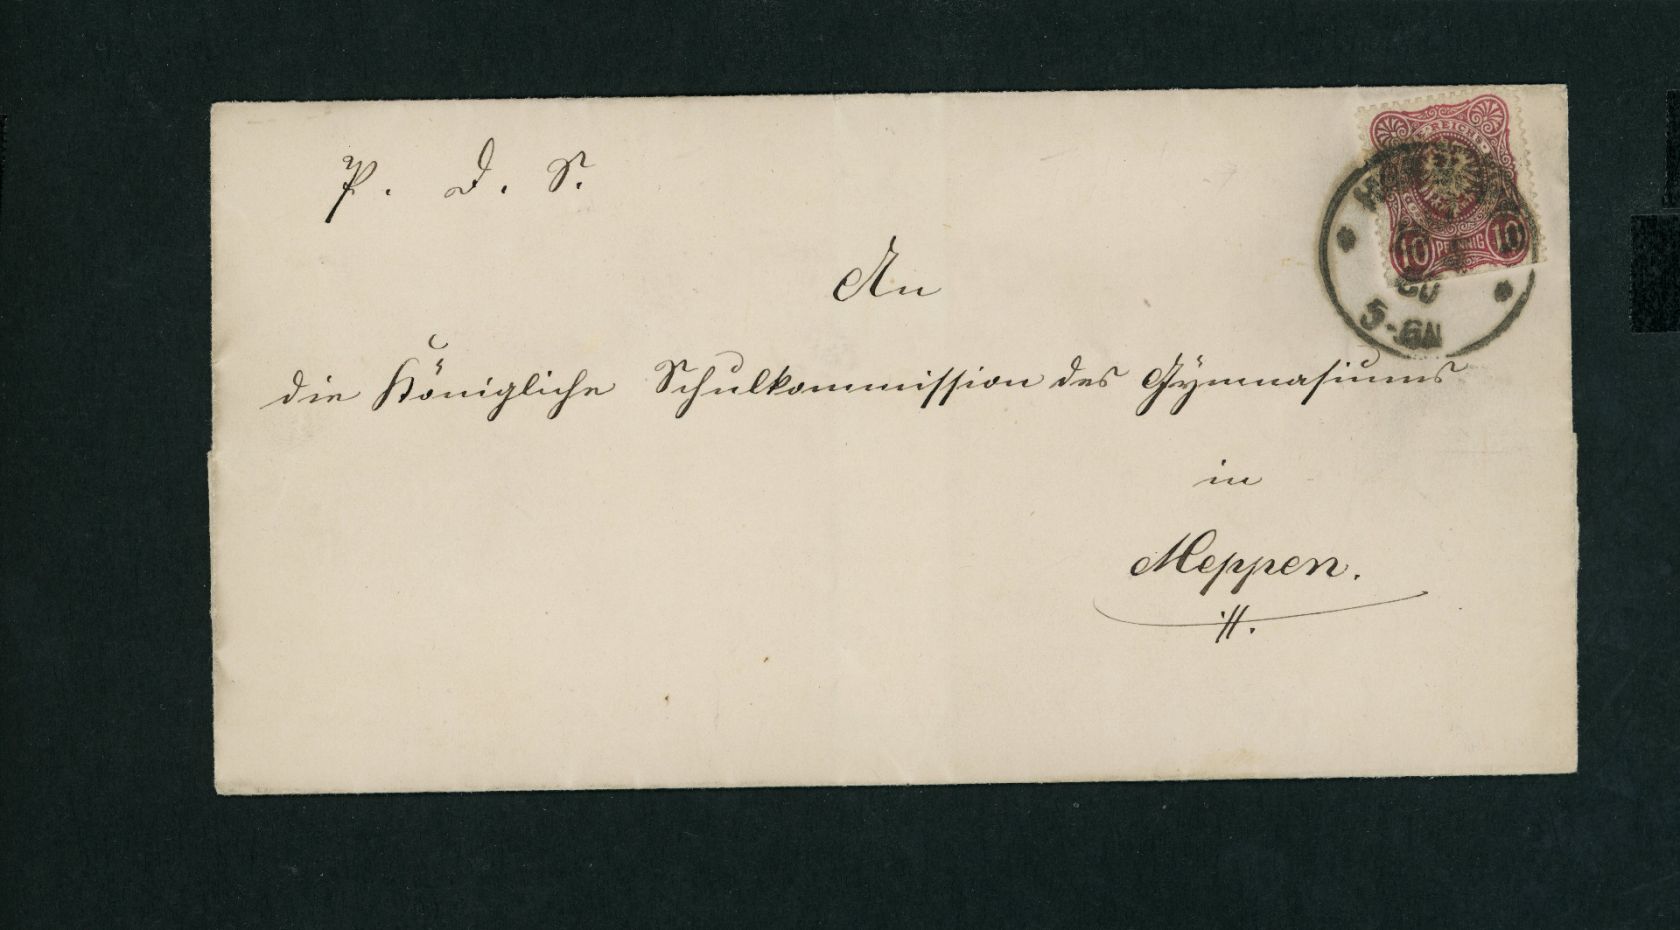 P. D. S.
REICHS
10 PFENNIG 10
80
5-6N
An
die Königliche Schulkommission des Gymnasiums
in
Meppen.